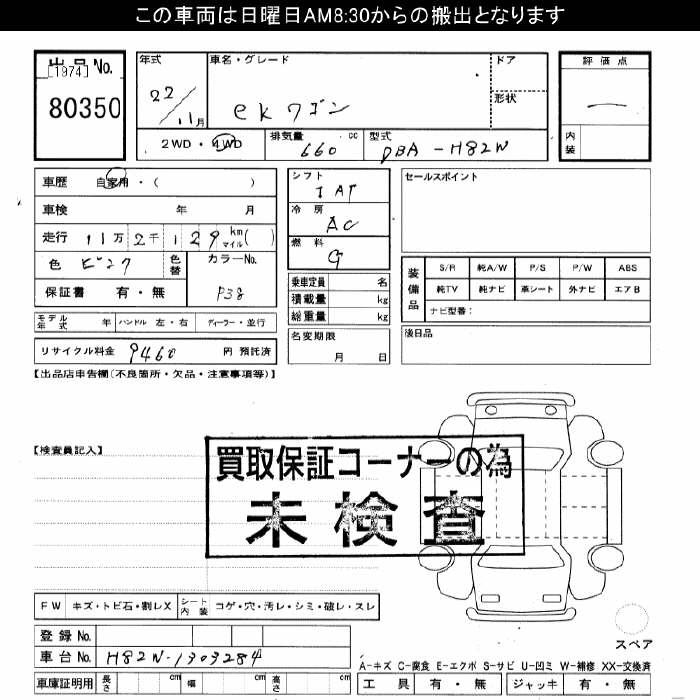 この車両は日曜日AM8:30からの搬出となります
出品No.
[1974]
80350
年式
22/11月
車名・グレード
ekワゴン
ドア
形状
評価点
内装
2WD・4WD
排気量
660 cc
型式
DBA-H82W
車歴 自家用・( )
車検 年 月
走行 11万2千129 km マイル( )
色 ピンク
色替
カラーNo.
P38
保証書 有・無
シフト
IAT
冷房
AC
燃料
G
乗車定員 名
積載量 kg
総重量 kg
名変期限
月 日
セールスポイント
装備品
S/R 純A/W P/S P/W ABS
純TV 純ナビ 革シート 外ナビ エアB
ナビ型番:
後日品
モデル年式 年 ハンドル 左・右 ディーラー・並行
リサイクル料金 9460 円 預託済
【出品店申告欄(不良箇所・欠品・注意事項等)】
【検査員記入】
買取保証コーナーの為
未検査
FW キズ・トビ石・割レX シート内装 コゲ・穴・汚レ・シミ・破レ・スレ
登録No.
車台No. H82W-1303284
車庫証明用 長さ cm 幅 cm 高さ cm
スペア
A-キズ C-腐食 E-エクボ S-サビ U-凹ミ W-補修 XX-交換済
工具 有・無 ジャッキ 有・無